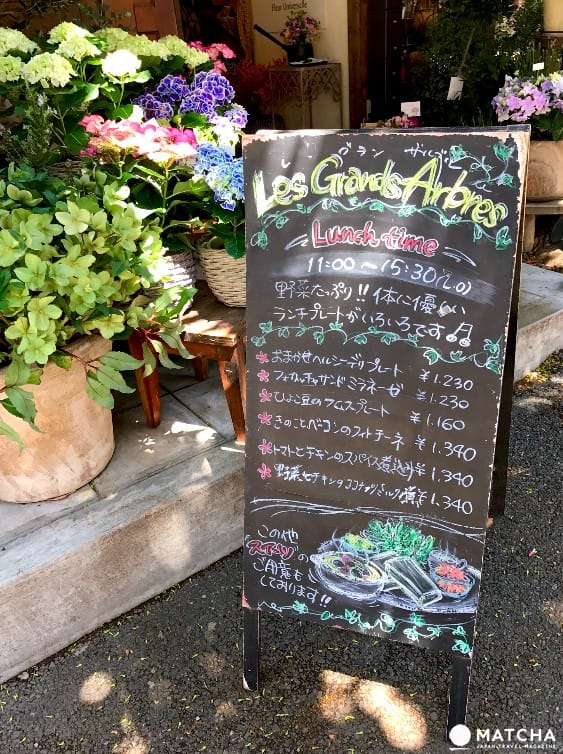 Fleur Universelle
グラン ザルブル
Les Grands Arbres
Lunch time
11:00〜15:30(L.O)
野菜たっぷり!!体に優しい
ランチプレートがいろいろです♫
おまかせヘルシーデリプレート ¥1.230
フォカッチャサンド ミラネーゼ ¥1.230
ひよこ豆のフムスプレート ¥1.160
きのことベーコンのフィットチーネ ¥1.340
トマトとチキンのスパイス煮込み ¥1.340
野菜とチキンのココナッツミルク煮 ¥1.340
この他
"スイーツ"の
ご用意も
しております!!
MATCHA
JAPAN TRAVEL MAGAZINE